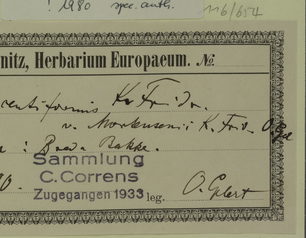 ! 1980 spec. auth.
116/654
nitz, Herbarium Europaeum. №
centiformis K. Fridr.
v. Mortensenii K. Frid. O. Gel
: Breda Bakke.
Sammlung
C. Correns
Zugegangen 1933 leg. O. Gelert